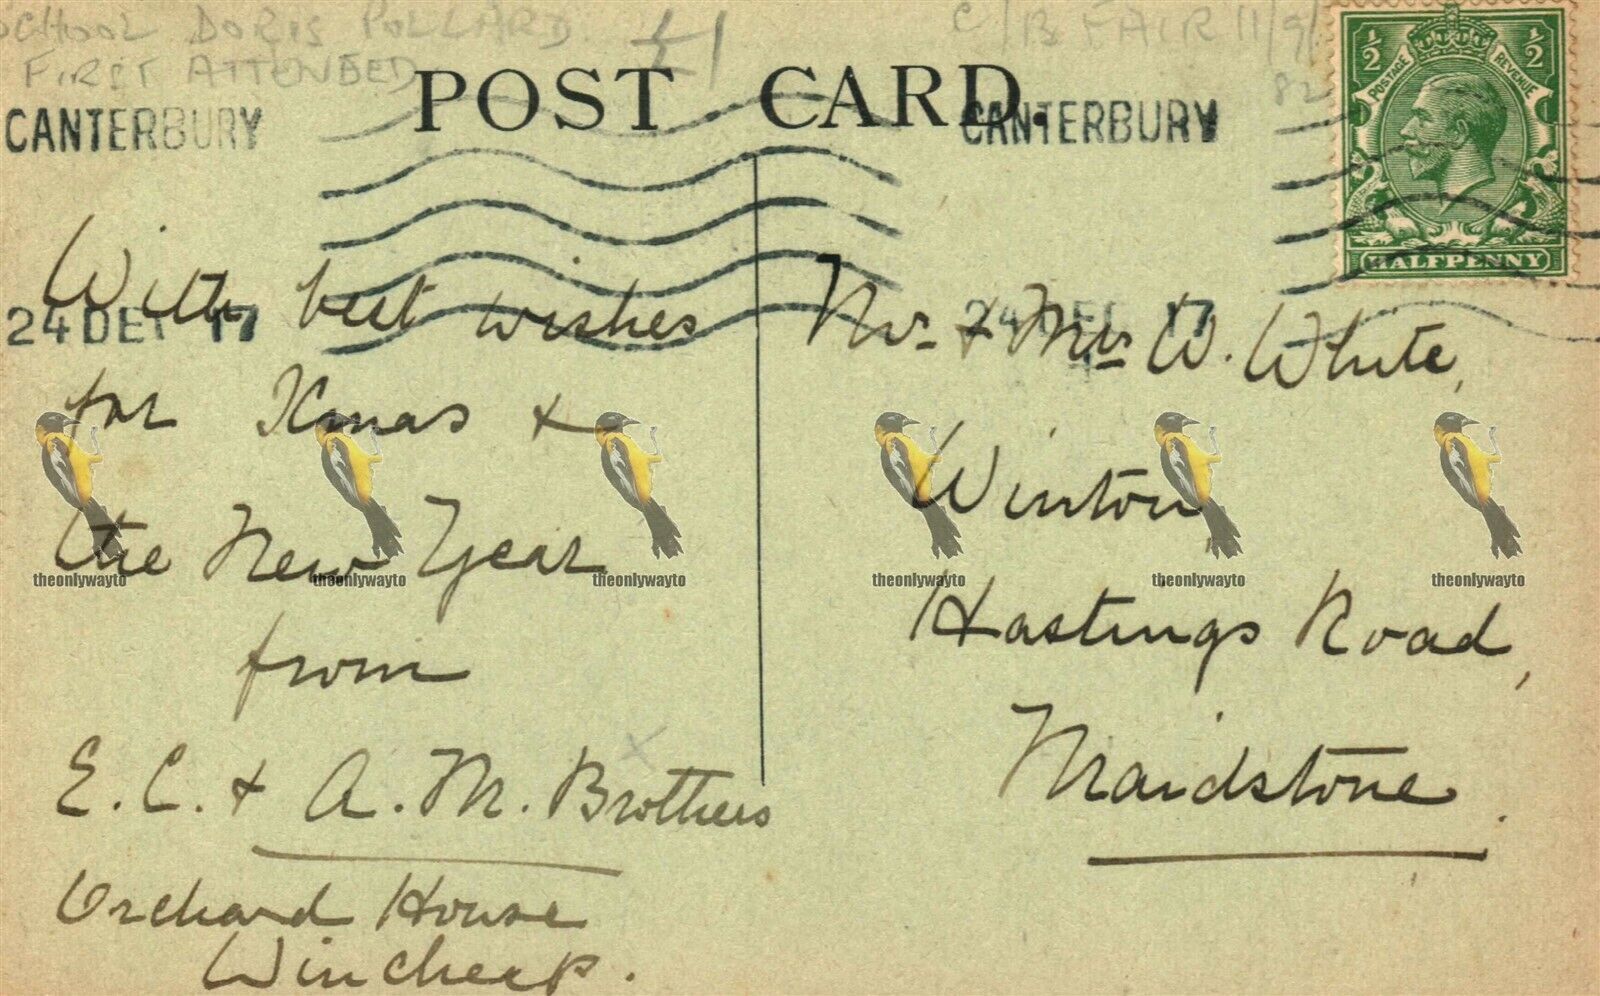 SCHOOL DORIS POLLARD £1
FIRST ATTENDED
C/B FAIR 11/9/
82
POST CARD.
CANTERBURY
CANTERBURY
24 DEC 17
24 DEC 17
½ ½
POSTAGE REVENUE
HALFPENNY
With best wishes
for Xmas +
the New Year
from
E. C. + A. M. Brothers
Orchard House
Wincheap.
Mr. + Mrs W. White,
Winton,
Hastings Road,
Maidstone.
theonlywayto theonlywayto theonlywayto theonlywayto theonlywayto theonlywayto